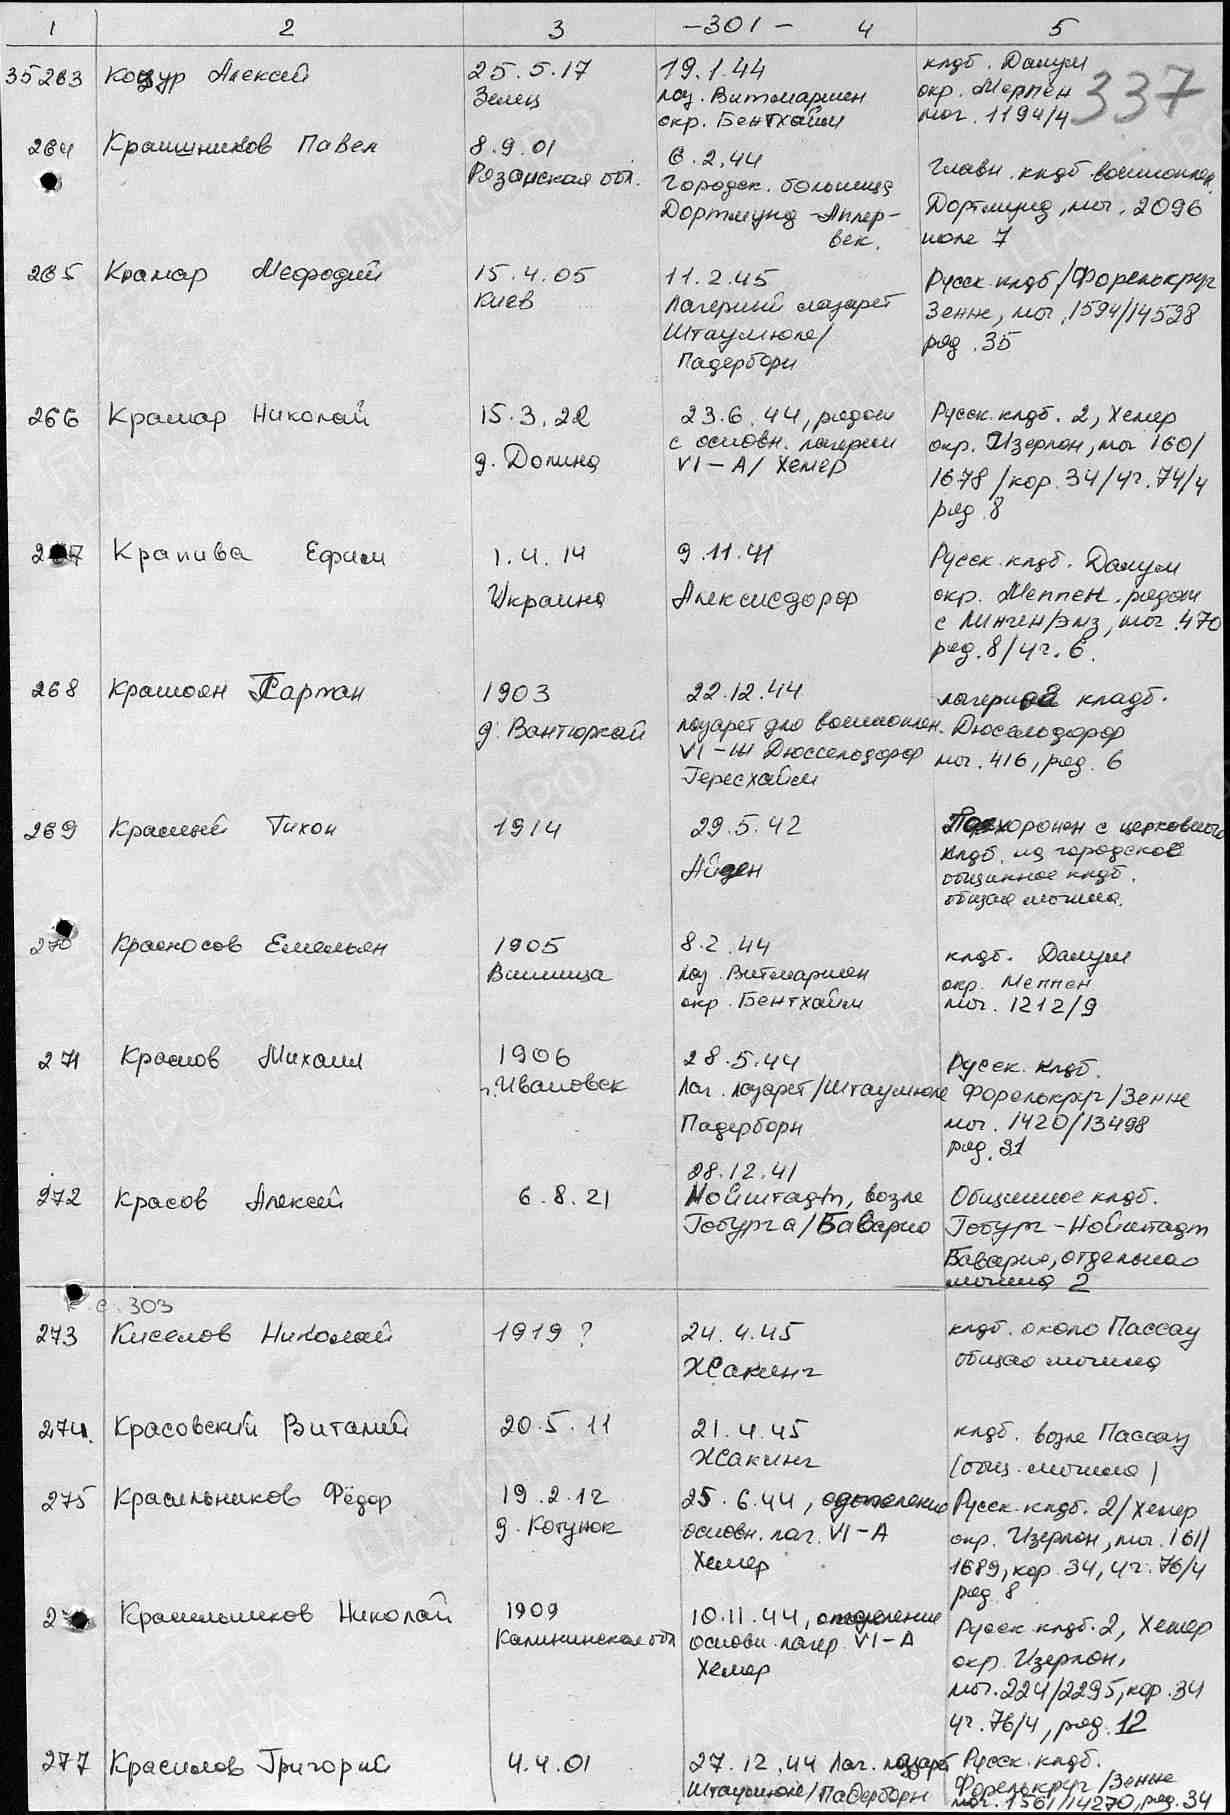 1 2 3 -301- 4 5
337
35263 Коцур Алексей 25.5.17 19.1.44 клдб. Далум
Зелец лаз. Витмаршен окр. Меппен
окр. Бентхайм мог. 1194/4
264 Крашников Павел 8.9.01 6.2.44 Главн. клдб военноплен.
Рязанская обл. Городск. больница Дортмунд, мог. 2096
Дортмунд-Аплер- поле 7
век.
265 Крамар Мефодий 15.4.05 11.2.45 Русск. клдб/Форелькруг
Киев Лагерный лазарет Зенне, мог. 1594/14528
Штаумюле/ ряд. 35
Падерборн
266 Крамар Николай 15.3.22 23.6.44, рядом Русск. клдб. 2, Хемер
д. Долина с основн. лагерем окр. Изерлон, мог 160/
VI-А/ Хемер 1678/кор. 34/уч. 74/4
ряд 8
267 Крапива Ефим 1.4.14 9.11.41 Русск. клдб. Далум
Украина Алексисдорф окр. Меппен. рядом
с Линген/Эмз, мог. 470
ряд. 8/уч. 6.
268 Крашоян Тартан 1903 22.12.44 лагерное кладб.
д. Вантюркай лазарет для военноплен. Дюссельдорф
VI-Ж Дюссельдорф мог. 416, ряд. 6
Гересхайм
269 Красный Тихон 1914 29.5.42 Перехоронен с церковного
Айден клдб. на городское
общинное клдб.
общая могила.
270 Красносов Емельян 1905 8.2.44 клдб. Далум
Винница лаз. Витмаршен окр. Меппен
окр. Бентхайм мог. 1212/9
271 Краснов Михаил 1906 28.5.44 Русск. клдб.
г. Ивановск Лаг. лазарет/Штаумюле Форелькруг/Зенне
Падерборн мог. 1420/13498
ряд. 31
272 Красов Алексей 6.8.21 28.12.41 Общинное клдб.
Нойштадт, возле Гобург-Нойштадт
Гобурга/Бавария Бавария, отдельная
могила 2
К с. 303
273 Киселов Николай 1919? 24.4.45 клдб. около Пассау
Жсакинг общая могила
274. Красовский Виталий 20.5.11 21.4.45 клдб. возле Пассау
Жсакинг (общ. могила)
275 Красильников Фёдор 19.2.12 25.6.44, отделение Русск. клдб. 2/Хемер
д. Котунок основн. лаг. VI-А окр. Изерлон, мог. 161/
Хемер 1689, кор. 34, уч. 76/4
ряд 8
2 Красильников Николай 1909 10.11.44, отделение Русск. клдб. 2, Хемер
Калининская обл основн. лагер. VI-А окр. Изерлон,
Хемер мог. 224/2295, кор. 34
уч. 76/4, ряд. 12
277 Красилов Григорий 4.4.01 27.12.44 Лаг. лазарет Русск. клдб.
Штаумюле/Падерборн Форелькруг/Зенне
мог. 1561/14270, ряд. 34